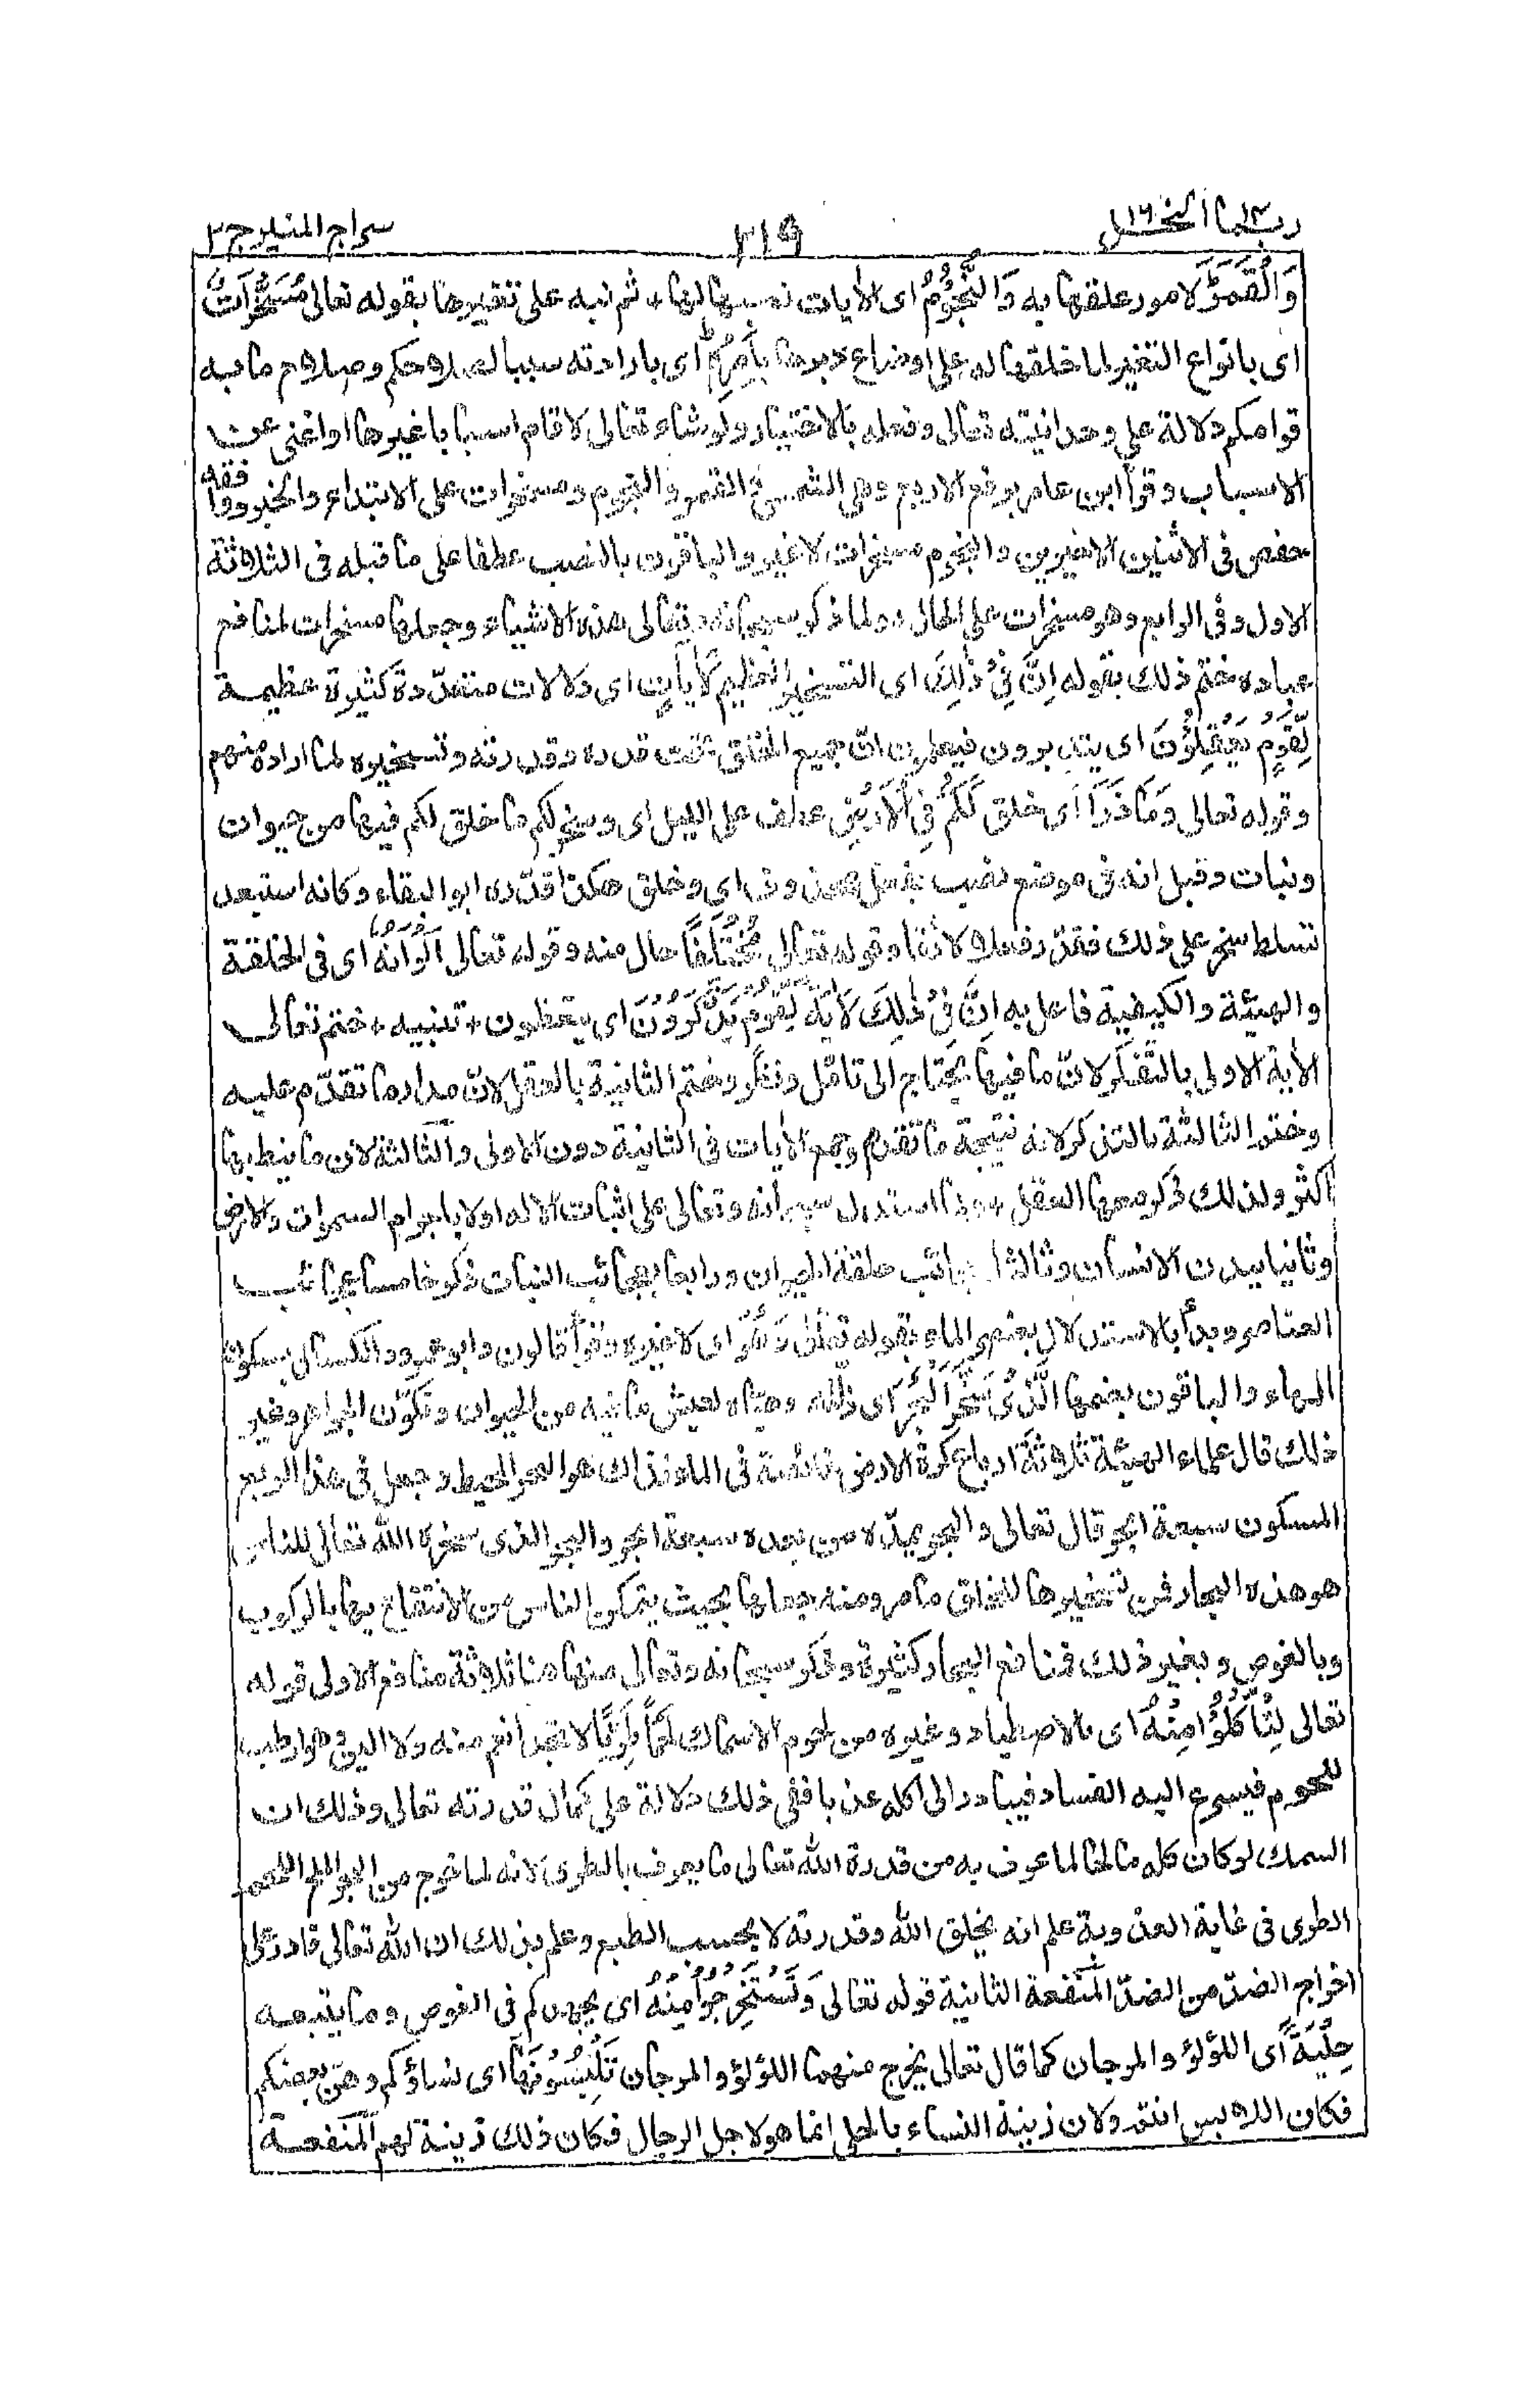 ربما ١٤ النحل ١٦
٣١٩
سراج المنير ج ٢
وَالْقَمَرَ لامور علقها به وَالنُّجُوْمُ اى الأيات نصبها لها ٠ ثم نبه على تغيرها بقوله تعالى مُسَخَّرَاتٌ
اى بانواع التغير لما خلقها له على اوضاع دبرها بِأَمْرِهٖ اى بارادته سببا لصلاحكم وصلاح ما به
قوامكم دلالة على وحدانيته تعالى وفعله بالاختيار ولو شاء تعالى لاقام اسبابا غيرها او اغنى عن
الاسباب وقرأ ابن عامر برفع الاربع وهى الشمس والقمر والنجوم ومسخرات على الابتداء والخبر ووافقه
حفص فى الاثنين الاخيرين والنجوم مسخرات لا غير والباقون بالنصب عطفا على ما قبله فى الثلاثة
الاول وفى الرابع وهو مسخرات على الحال ٠ ولما ذكر سبحانه وتعالى هذه الاشياء وجعلها مسخرات لمنافع
عباده ختم ذلك بقوله اِنَّ فِىْ ذٰلِكَ اى التسخير العظيم لَأٰيٰتٍ اى دلالات متعدّدة كثيرة عظيمة
لِّقَوْمٍ يَّعْقِلُوْنَ اى يتدبرون فيعلمون انّ جميع الخلق تحت قدره وقدرته وتسخيره لما اراده منهم
وقوله تعالى وَمَا ذَرَأَ اى خلق لَكُمْ فِى الْاَرْضِ عطف على الليل اى وسخر لكم ما خلق لكم فيها من حيوان
ونبات وقيل انه فى موضع نصب بفعل محذوف اى وخلق هكذا قدّره ابو البقاء وكانه استبعد
تسلط سخر على ذلك فقدّر فعلا لائقا وقوله تعالى مُخْتَلِفًا حال منه وقوله تعالى اَلْوَانُهٗ اى فى الخلقة
والهيئة والكيفية فاعل به اِنَّ فِىْ ذٰلِكَ لَاٰيَةً لِّقَوْمٍ يَّذَّكَّرُوْنَ اى يتعظون ٠ تنبيه ٠ ختم تعالى
الأية الاولى بالتفكر لانّ ما فيها يحتاج الى تامّل وتفكر وختم الثانية بالعقل لانّ مدار ما تقدّم عليه
وختم الثالثة بالتذكر لانه نتيجة ما تقدم وجمع الأيات فى الثانية دون الاولى والثالثة لان ما ينط بها
اكثر ولذلك ذكر معها العقل ٠ ولما استدل سبحانه وتعالى على اثبات الاله اولا باجرام السموات والارض
وثانيا ببدن الانسان وثالثا بعجائب خلقة الحيوان ورابعا بعجائب النبات ذكر خامسا عجائب
العناصر وبدأ بالاستدلال بعنصر الماء بقوله تعالى وَهُوَ اى لا غيره وقرأ قالون وابو عمرو والكسائى بسكون
الهاء والباقون بضمها الَّذِىْ سَخَّرَ الْبَحْرَ اى ذلّله وهيّاه لعيش ما فيه من الحيوان وتكوّن الجواهر وغير
ذلك قال علماء الهيئة ثلاثة ارباع كرة الارض غائصة فى الماء فذاك هو البحر المحيط وجعل فى هذا الربع
المسكون سبعة ابحر قال تعالى والبحر يمدّه من بعده سبعة ابحر والبحر الذى سخره الله تعالى للناس
هو هذه البحار فمن تسخيرها للخلق ما مر ومنه جعلها بحيث يتمكن الناس من الانتفاع بها بالركوب
وبالغوص وبغير ذلك فمنافع البحار كثيرة وذكر سبحانه وتعالى منها هنا ثلاثة منافع الاولى قوله
تعالى لِتَأْكُلُوْا مِنْهُ اى بالاصطياد وغيره من لحوم الاسماك لَحْمًا طَرِيًّا لا تجد انعم منه ولا الين وهو ارطب
للحوم فيسرع اليه الفساد فيبادر الى اكله عذبا ففى ذلك دلالة على كمال قدرته تعالى وذلك ان
السمك لو كان كله مالحا لما عرف به من قدرة الله تعالى ما يعرف بالطرى لانه لما خرج من البحر الملح اللحم
الطرى فى غاية العذوبة علم انه بخلق الله وقدرته لا بحسب الطبع وعلم بذلك ان الله تعالى قادر على
اخراج الضدّ من الضدّ المنفعة الثانية قوله تعالى وَتَسْتَخْرِجُوْا مِنْهُ اى بجهدكم فى الغوص وما يتبعه
حِلْيَةً اى اللؤلؤ والمرجان كما قال تعالى يخرج منهما اللؤلؤ والمرجان تَلْبَسُوْنَهَا اى نساؤكم وهنّ بعضكم
فكان اللابس انتم ولان زينة النساء بالحلى انما هو لاجل الرجال فكان ذلك زينة لهم المنفعة